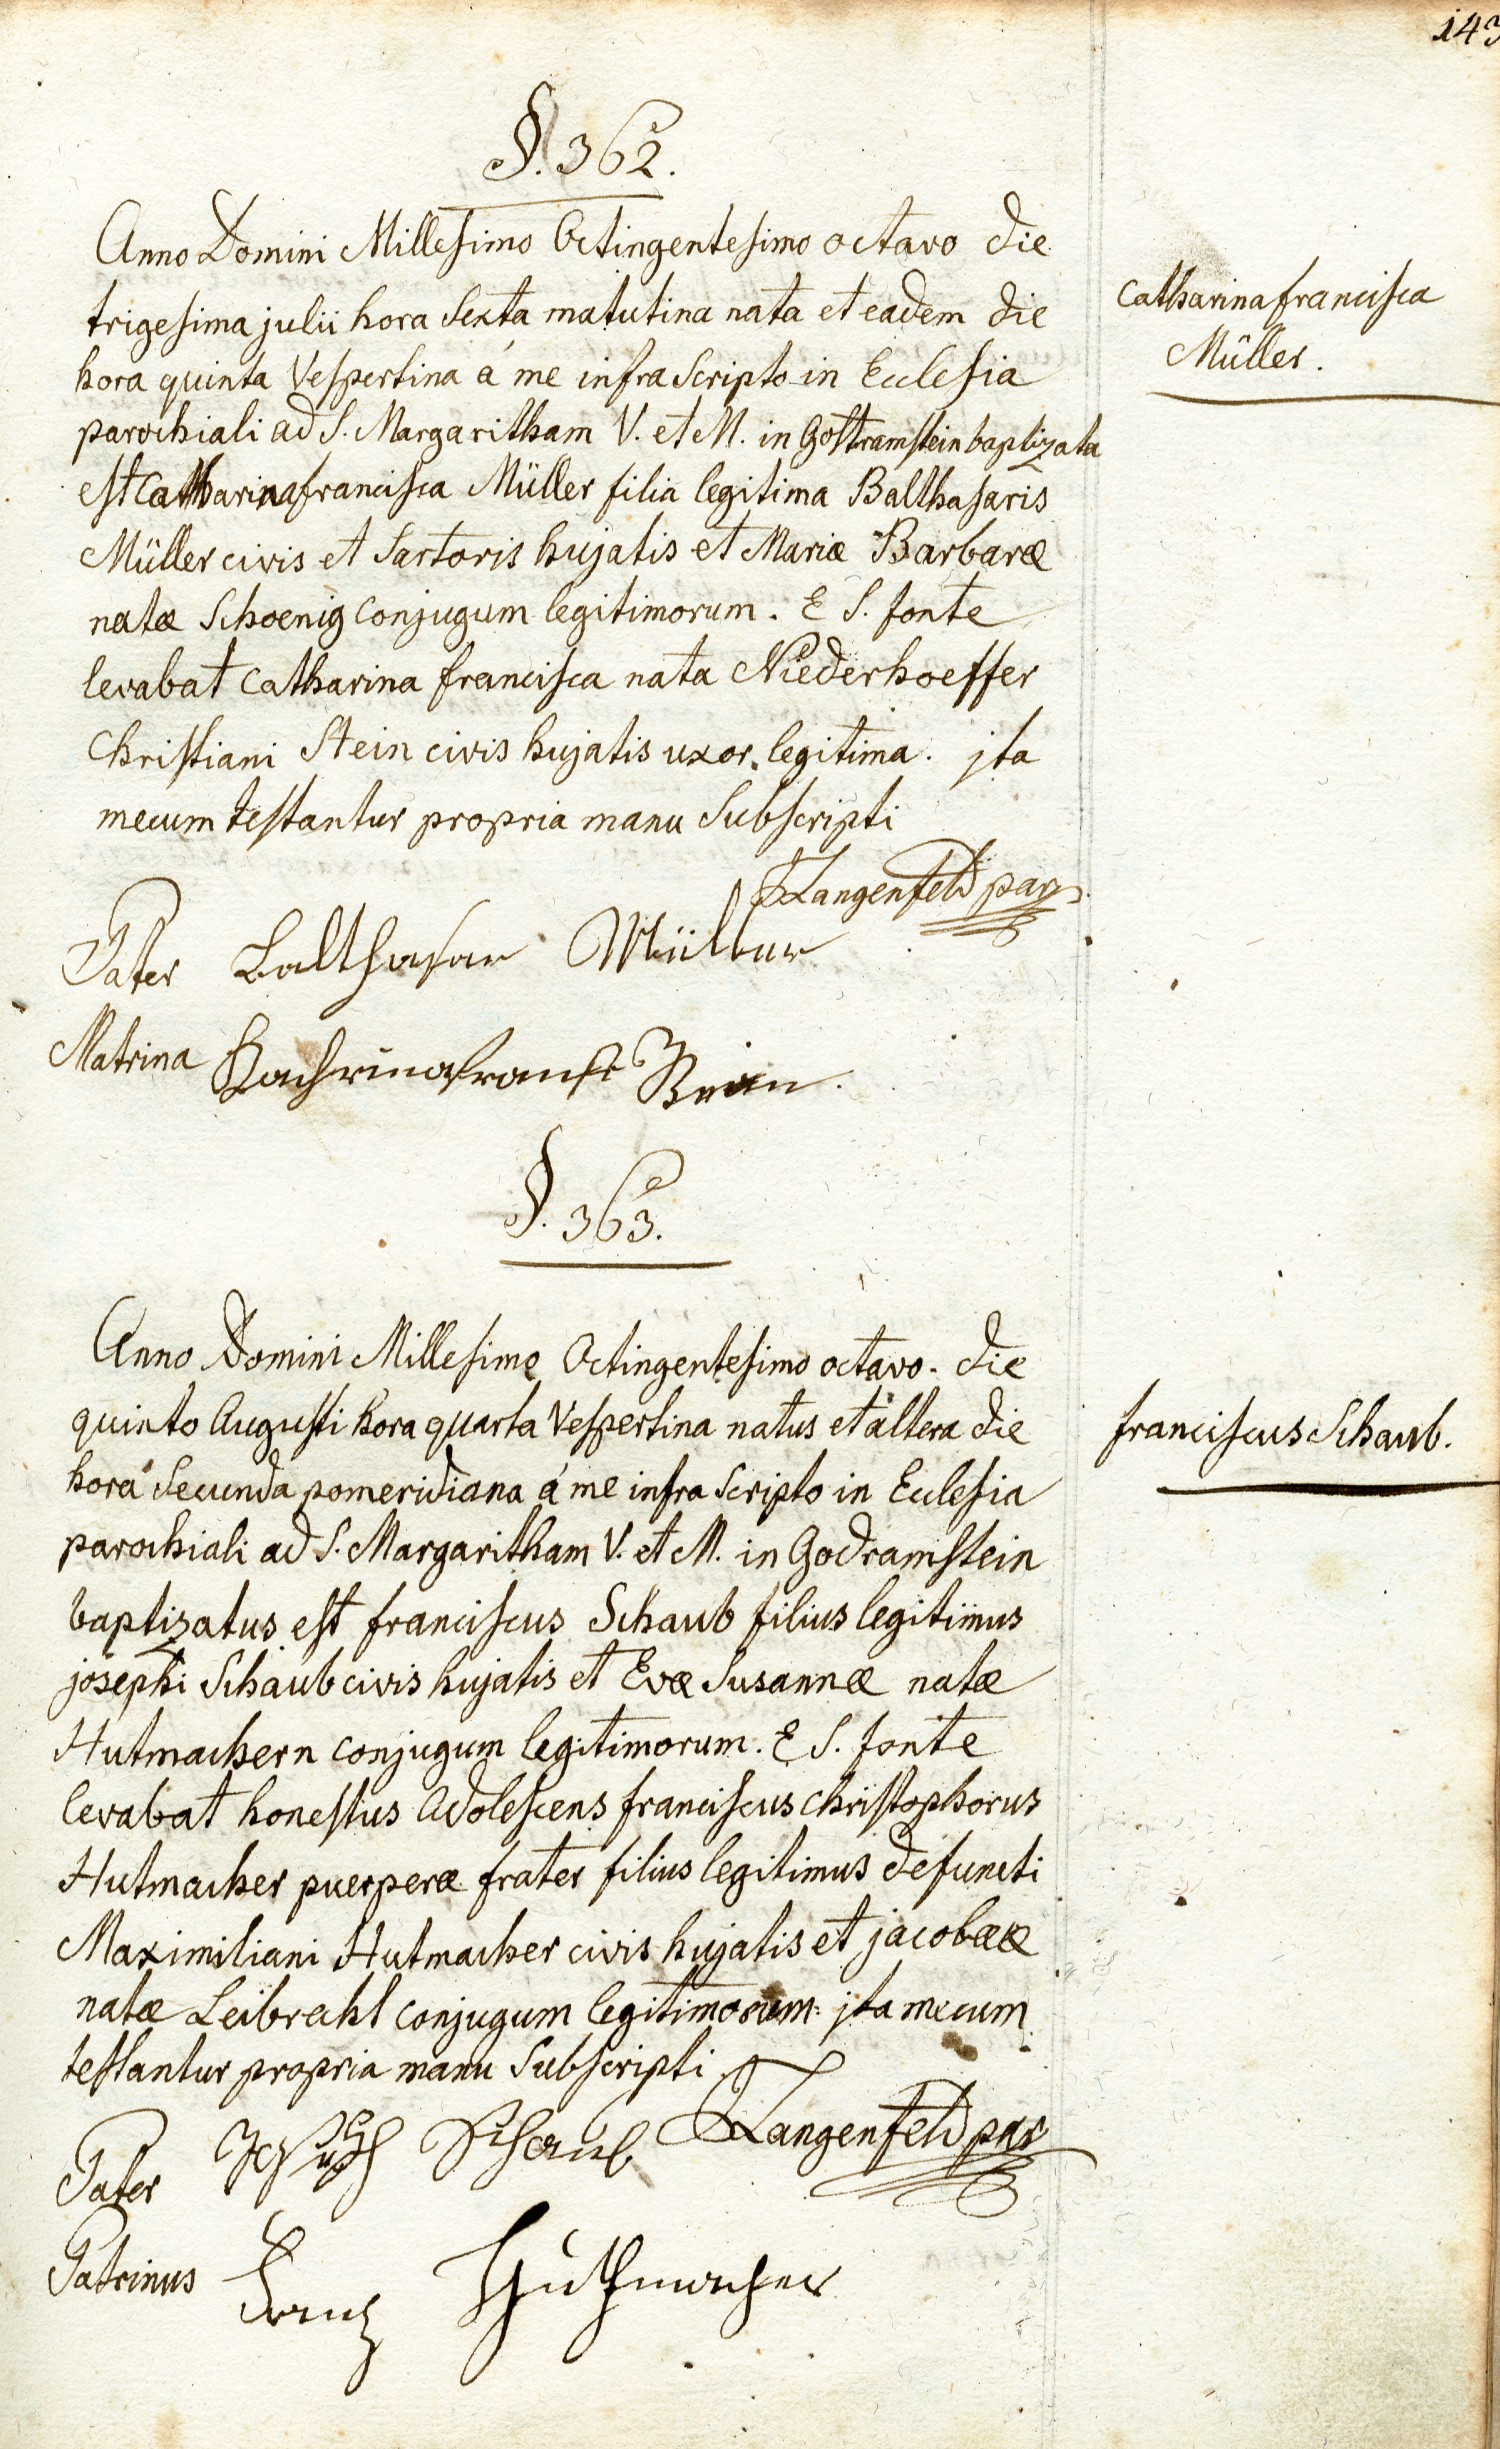 143
§. 362.
Anno Domini Millesimo Octingentesimo octavo die
trigesima julii hora Sexta matutina nata et eadem die
hora quinta Vespertina á me infra Scripto in Ecclesia
parochiali ad S. Margaritham V. et M. in Gottramstein baptizata
est Catharina francisca Müller filia legitima Balthasaris
Müller civis et Sartoris hujatis et Mariæ Barbaræ
natæ Schoenig conjugum legitimorum. E S. fonte
levabat Catharina francisca nata Niederhoeffer
Christiani Stein civis hujatis uxor legitima. jta
mecum testantur propria manu Subscripti
Langenfeld par
Pater Balthasar Müller
Matrina
Catharina francisca
Müller.
§. 363.
Anno Domini Millesimo Octingentesimo octavo. die
quinto Augusti hora quarta Vespertina natus et altera die
hora Secunda pomeridiana á me infra Scripto in Ecclesia
parochiali ad S. Margaritham V. et M. in Godramstein
baptizatus est franciscus Schaub filius legitimus
josephi Schaub civis hujatis et Evæ Susannæ natæ
Hutmachern conjugum legitimorum. E S. fonte
levabat honestus Adolescens franciscus christophorus
Hutmacher puerperæ frater filius legitimus defuncti
Maximiliani Hutmacher civis hujatis et jacobææ
natæ Leibrecht conjugum legitimorum. jta mecum
testantur propria manu Subscripti
Langenfeld par
Pater Schaub
Patrinus Franz Huthmacher
franciscus Schaub.